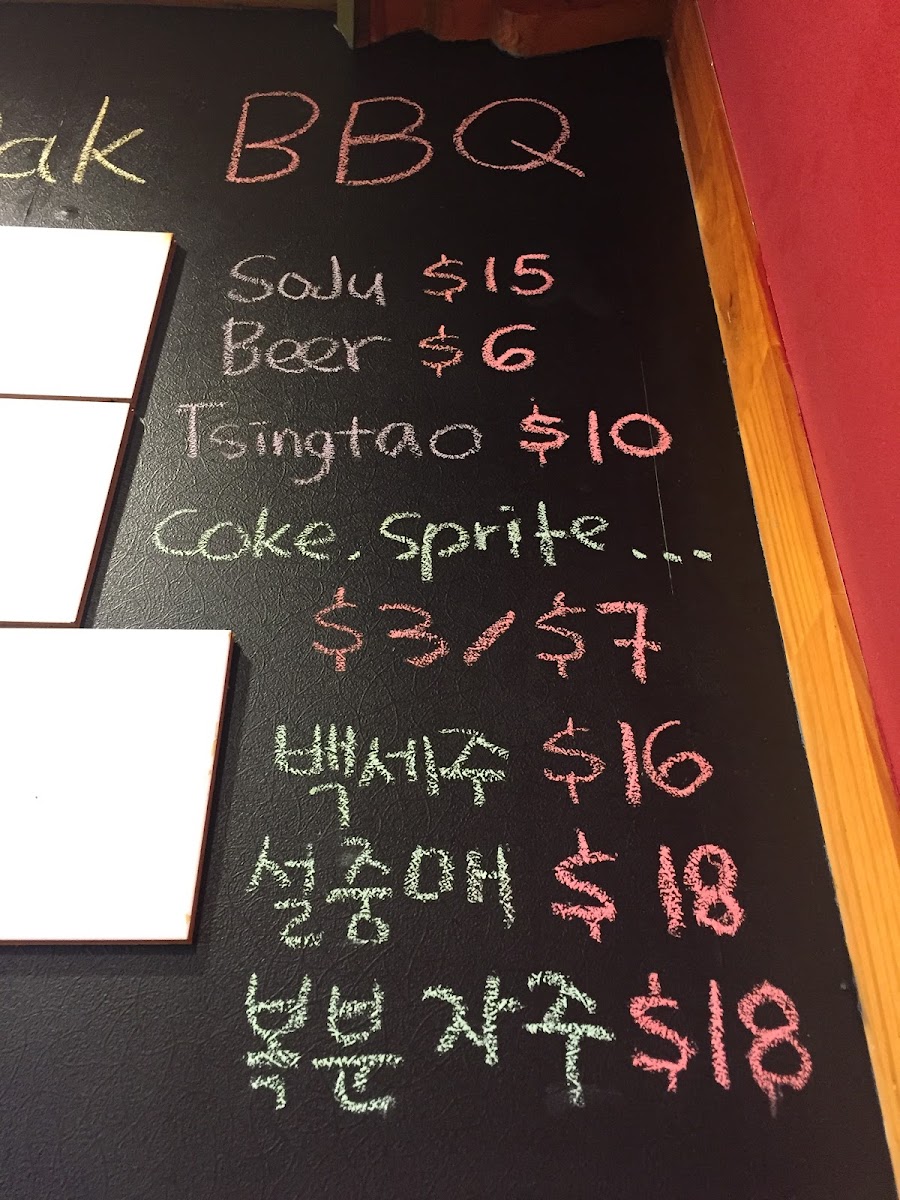 BBQ
SoJu $15
Beer $6
Tsingtao $10
Coke, Sprite...
$3/$7
백세주 $16
설중매 $18
복분자주 $18